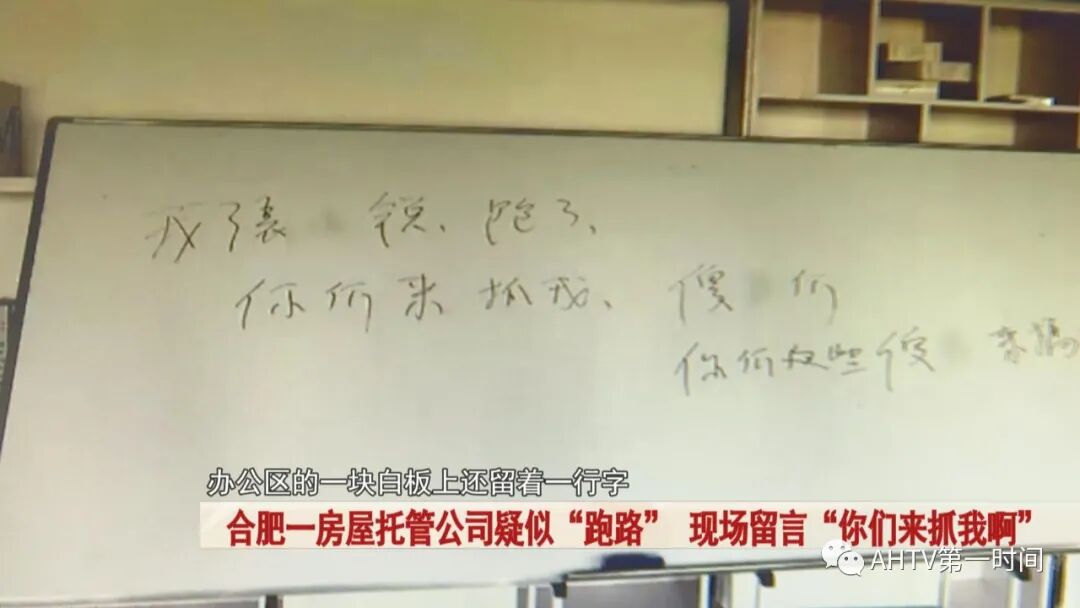 我张 锐、跑了、
你们来抓我、傻 们
你们这些傻 来搞
办公区的一块白板上还留着一行字
合肥一房屋托管公司疑似“跑路” 现场留言“你们来抓我啊”
AHTV第一时间